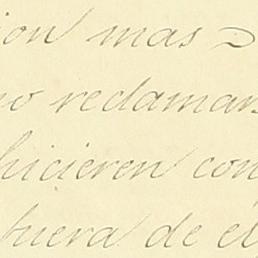 ion mas
no reclamar
hicieren con
fuera de él